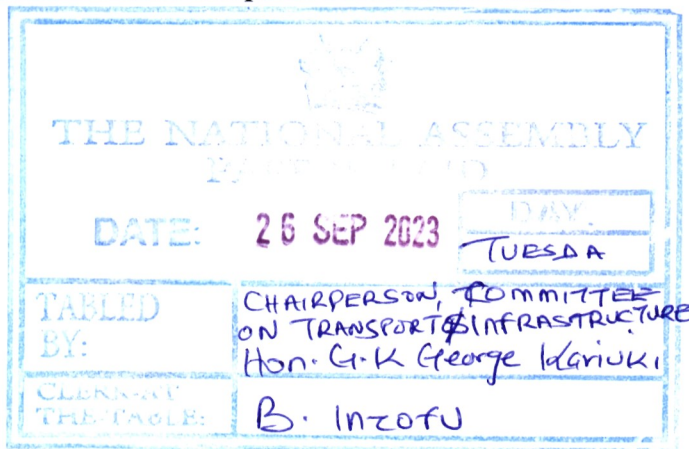 THE NATIONAL ASSEMBLY
DATE: 26 SEP 2023 DAY.
TUESDA
TABLED BY: CHAIRPERSON, COMMITTEE
ON TRANSPORT & INFRASTRUCTURE
Hon. G.K George Kariuki
CLERK-AT THE-TABLE: B. Inzofu